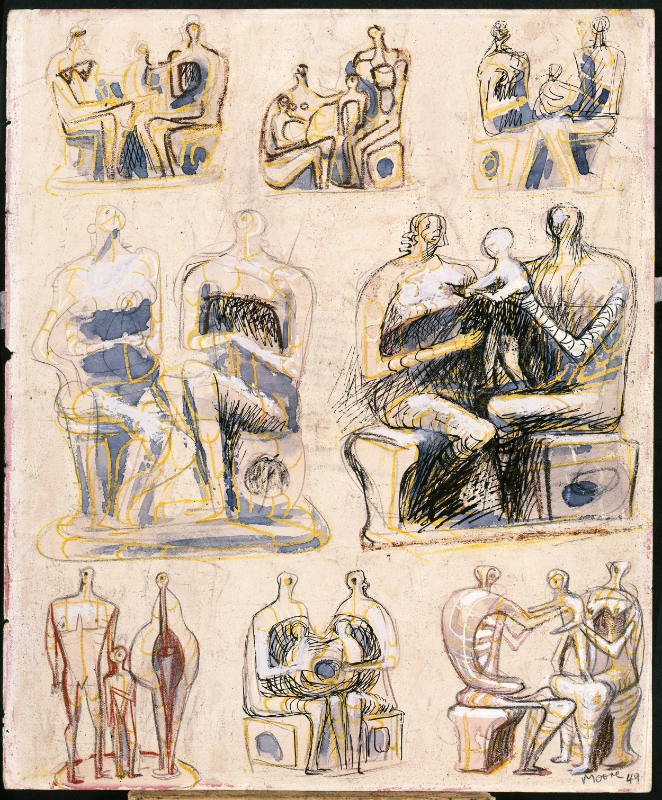 Moore 49